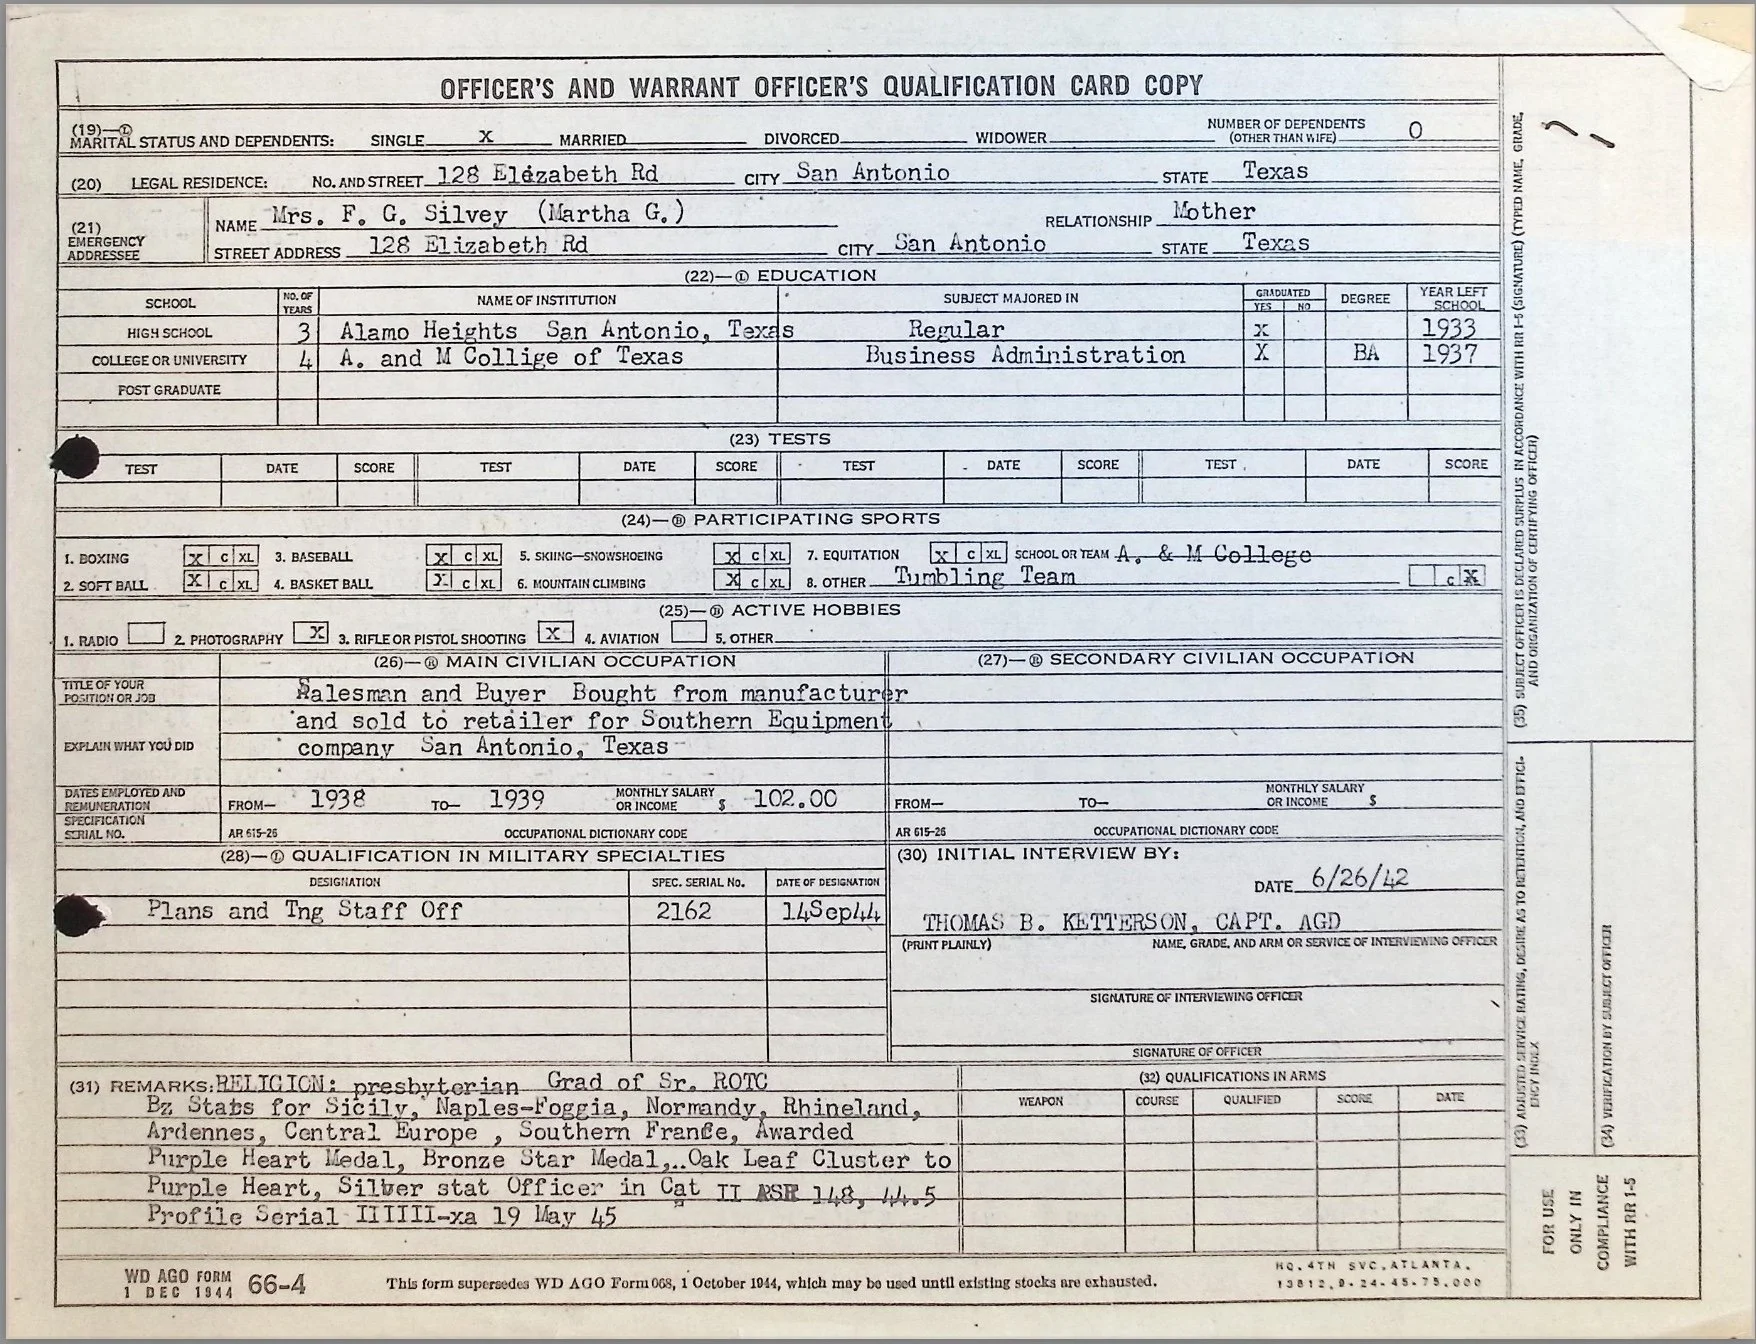 OFFICER'S AND WARRANT OFFICER'S QUALIFICATION CARD COPY
(19)—Ⓛ MARITAL STATUS AND DEPENDENTS: SINGLE X MARRIED DIVORCED WIDOWER NUMBER OF DEPENDENTS (OTHER THAN WIFE) 0
(20) LEGAL RESIDENCE: NO. AND STREET 128 Elizabeth Rd CITY San Antonio STATE Texas
(21) EMERGENCY ADDRESSEE
NAME Mrs. F. G. Silvey (Martha G.) RELATIONSHIP Mother
STREET ADDRESS 128 Elizabeth Rd CITY San Antonio STATE Texas
(22)—Ⓛ EDUCATION
SCHOOL NO. OF YEARS NAME OF INSTITUTION SUBJECT MAJORED IN GRADUATED YES NO DEGREE YEAR LEFT SCHOOL
HIGH SCHOOL 3 Alamo Heights San Antonio, Texas Regular X 1933
COLLEGE OR UNIVERSITY 4 A. and M Collige of Texas Business Administration X BA 1937
POST GRADUATE
(23) TESTS
TEST DATE SCORE TEST DATE SCORE TEST DATE SCORE TEST DATE SCORE
(24)—Ⓑ PARTICIPATING SPORTS
1. BOXING X C XL 3. BASEBALL X C XL 5. SKIING—SNOWSHOEING X C XL 7. EQUITATION X C XL SCHOOL OR TEAM A. & M College
2. SOFT BALL X C XL 4. BASKET BALL X C XL 6. MOUNTAIN CLIMBING X C XL 8. OTHER Tumbling Team C X
(25)—Ⓑ ACTIVE HOBBIES
1. RADIO 2. PHOTOGRAPHY X 3. RIFLE OR PISTOL SHOOTING X 4. AVIATION 5. OTHER
(26)—Ⓑ MAIN CIVILIAN OCCUPATION
TITLE OF YOUR POSITION OR JOB Salesman and Buyer Bought from manufacturer
and sold to retailer for Southern Equipment
EXPLAIN WHAT YOU DID company San Antonio, Texas
DATES EMPLOYED AND REMUNERATION FROM— 1938 TO— 1939 MONTHLY SALARY OR INCOME $ 102.00
SPECIFICATION SERIAL NO. AR 615-26 OCCUPATIONAL DICTIONARY CODE
(27)—Ⓑ SECONDARY CIVILIAN OCCUPATION
FROM— TO— MONTHLY SALARY OR INCOME $
AR 615-26 OCCUPATIONAL DICTIONARY CODE
(28)—Ⓛ QUALIFICATION IN MILITARY SPECIALTIES
DESIGNATION SPEC. SERIAL No. DATE OF DESIGNATION
Plans and Tng Staff Off 2162 14Sep44
(30) INITIAL INTERVIEW BY:
DATE 6/26/42
THOMAS B. KETTERSON, CAPT. AGD
(PRINT PLAINLY) NAME, GRADE, AND ARM OR SERVICE OF INTERVIEWING OFFICER
SIGNATURE OF INTERVIEWING OFFICER
SIGNATURE OF OFFICER
(31) REMARKS: RELIGION: presbyterian Grad of Sr. ROTC
Bz Stabs for Sicily, Naples-Foggia, Normandy, Rhineland,
Ardennes, Central Europe , Southern France, Awarded
Purple Heart Medal, Bronze Star Medal,..Oak Leaf Cluster to
Purple Heart, Silber stat Officer in Cat II ASR 148, 44.5
Profile Serial IIIIII-xa 19 May 45
(32) QUALIFICATIONS IN ARMS
WEAPON COURSE QUALIFIED SCORE DATE
WD AGO FORM 66-4
1 DEC 1944
This form supersedes WD AGO Form 068, 1 October 1944, which may be used until existing stocks are exhausted.
HQ. 4TH SVC, ATLANTA.
13812, 9-24-45-75,000
(35) SUBJECT OFFICER IS DECLARED SURPLUS IN ACCORDANCE WITH RR 1-5 (SIGNATURE) (TYPED NAME, GRADE,
AND ORGANIZATION OF CERTIFYING OFFICER)
(33) ADJUSTED SERVICE RATING, DESIRE AS TO RETENTION, AND EFFICI-
ENCY INDEX
(34) VERIFICATION BY SUBJECT OFFICER
FOR USE
ONLY IN
COMPLIANCE
WITH RR 1-5